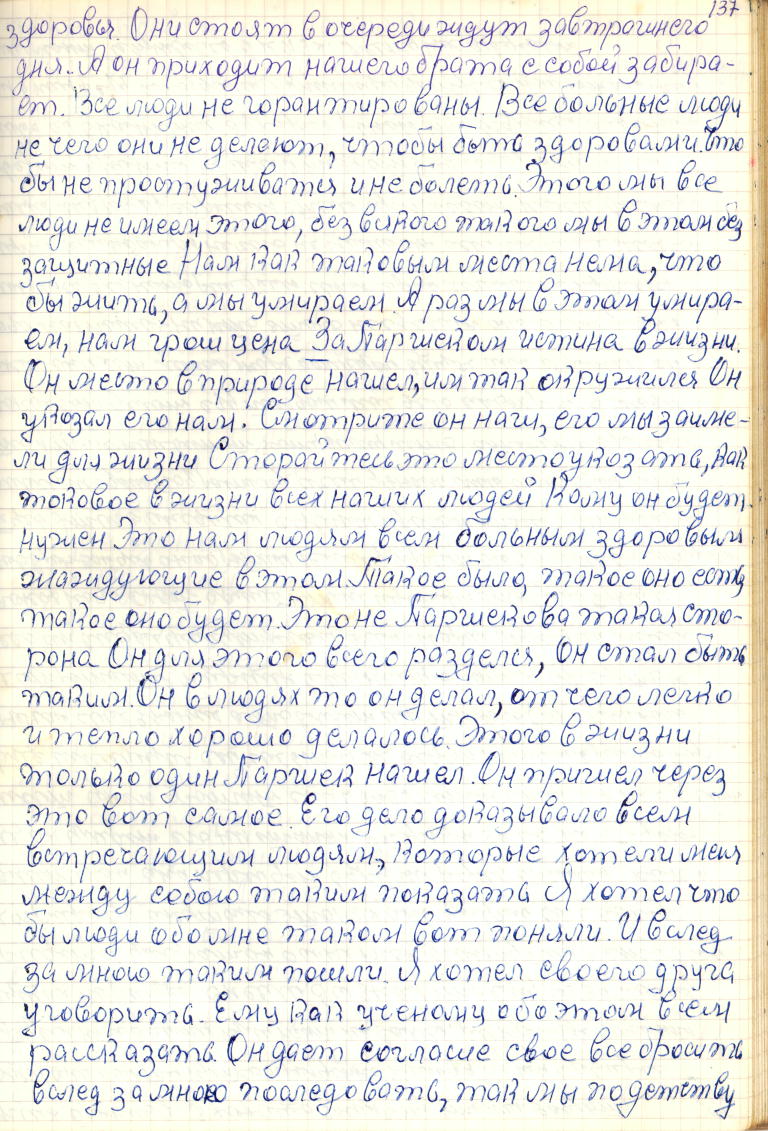 137
здоровья. Они стоят в очереди ждут завтрашнего
дня. А он приходит нашего брата с собой забира-
ет. Все люди не горантированы. Все больные люди
не чего они не делеют, чтобы быть здоровами. Что
бы не простуживатся и не болеть. Этого мы все
люди не имеем этого, без всякого такого мы в этом без
защитные Нам как таковым места нема, что
бы жить, а мы умираем. А раз мы в этом умира-
ем, нам грош цена За Паршеком истина в жизни.
Он место в природе нашел, им так окружился Он
указал его нам. Смотрите он наш, его мы заиме-
ли для жизни Сторайтесь это место уκозать, как
токовое в жизни всех наших людей Кому он будет
нужен Это нам людям всем больным здоровым
жаждующие в этом. Такое было, такое оно есть
такое оно будет. Это не Паршекова такая сто-
рона Он для этого всего разделся, Он стал быть
таким. Он в людях то он делал, от чего легко
и тепло хорошо делалось. Этого в жизни
только один Паршек нашел. Он пришел через
это вот самое. Его дело доказывало всем
встречающим людям, которые хотели меня
между собою таким показать Я хотел что
бы люди обо мне таком вот поняли. И вслед
за мною таким пошли. Я хотел своего друга
уговорить. Ему как ученому обо этом всем
рассказать. Он дает согласие свое все бросить
вслед за мною последовать, так мы по детству